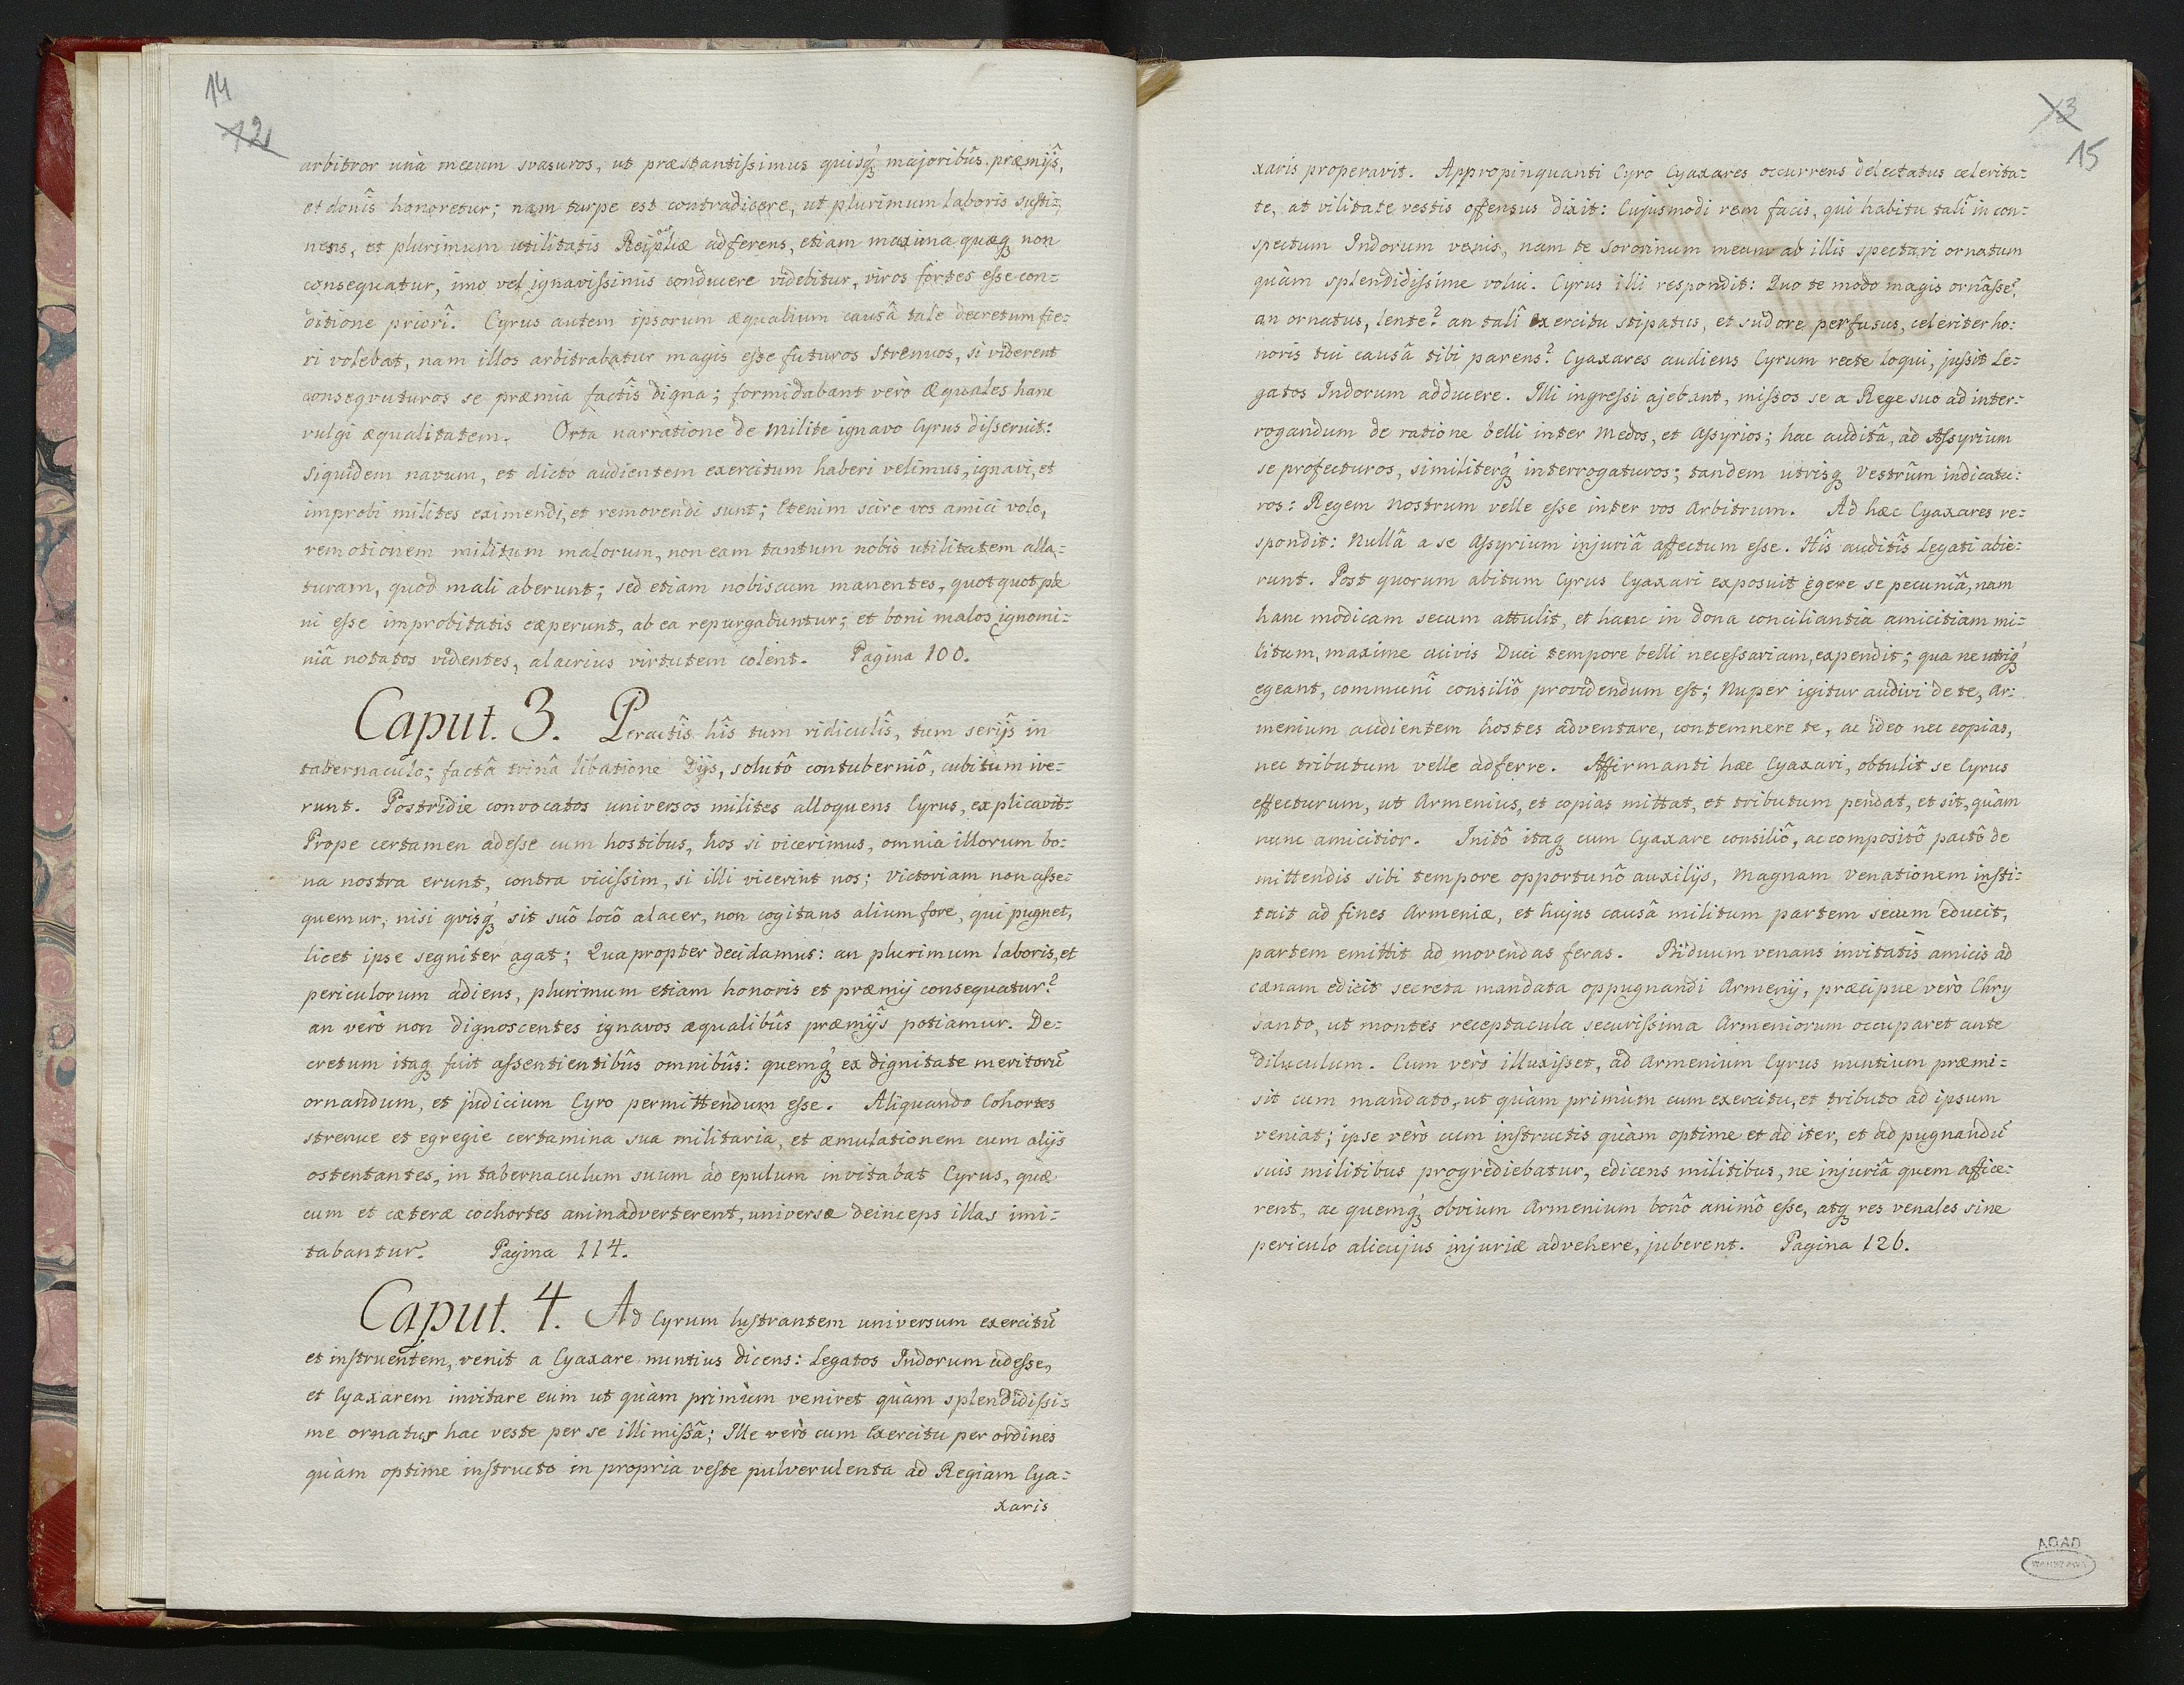 14
12
arbitror unà mecum svasuros, ut præstantissimus quisq́ꝫ majoribûs præmijs̃,
et donîs honoretur; nam turpe est contradicere, ut plurimum laboris susti:
nens, et plurimum utilitatis Reip̃liæ adferens, etiam maxima quæqꝫ non
consequatur, imo vel ignavissimis conducere videbitur, viros fortes esse con:
ditione priorî. Cyrus autem ipsorum æqualium causâ tale decretum fie:
ri volebat, nam illos arbitrabatur magis esse futuros strenuos, si viderent
consequuturos se præmia factîs digna; formidabant verò Æquales hanc
vulgi æqualitatem. Orta narratione de Milite ignavo Cyrus disseruit:
siquidem navum, et dicto audientem exercitum haberi velimus, ignavi, et
improbi milites eximendi, et removendi sunt; Etenim scire vos amici volo,
remotionem militum malorum, non eam tantum nobis utilitatem alla:
turam, quod mali aberunt; sed etiam nobiscum manentes, quotquot ple
ni esse improbitatis cæperunt, ab ea repurgabuntur; et boni malos ignomi:
niâ notatos videntes, alacrius virtutem colent. Pagina 100.
Caput. 3. Peractîs hîs tum ridiculîs, tum serijs in
tabernaculo; factâ trinâ libatione Dijs, solutô contuberniô, cubitum ive:
runt. Postridie convocatos universos milites alloquens Cyrus, explicavit:
Prope certamen adesse cum hostibus, hos si vicerimus, omnia illorum bo:
na nostra erunt, contra vicissim, si illi vicerint nos; victoriam non asse:
quemur, nisi qvisq́ꝫ sit suô locô alacer, non cogitans alium fore, qui pugnet,
licet ipse segniter agat; Quapropter decidamus: an plurimum laboris, et
periculorum adiens, plurimum etiam honoris et præmij consequatur?
an verò non dignoscentes ignavos æqualibûs præmijs̃ potiamur. De:
cretum itaqꝫ fuit assentientibûs omnibûs: quemq́ꝫ ex dignitate meritorũ
ornandum, et judicium Cyro permittendum esse. Aliquando Cohortes
strenue et egregie certamina sua militaria, et æmulationem cum alijs
ostentantes, in tabernaculum suum ad epulum invitabat Cyrus, quæ
cum et cæteræ cochortes animadverterent, universæ deinceps illas imi:
tabantur. Pagina 114.
Caput. 4. Ad Cyrum lustrantem universum exercitũ
et instruentem, venit a Cyaxare nuntius dicens: Legatos Indorum adesse,
et Cyaxarem invitare eum ut quàm primùm veniret quàm splendidissi:
me ornatus hac veste per se illi missâ; Ille verò cum Exercitu per ordines
quàm optime instructo in propria veste pulverulenta ad Regiam Cya:
xaris
13
15
xaris properavit. Appropinquanti Cyro Cyaxares occurrens delectatus celerita:
te, at vilitate vestis offensus dixit: Cujusmodi rem facis, qui habitu talî in con:
spectum Indorum venis, nam te sororinum meum ab illis spectari ornatum
quàm splendidissime volui. Cyrus illi respondit: Quo te modo magis ornâsse?,
an ornatus, lente? an talî Exercitu stipatus, et sudore perfusus, celeriter ho:
noris tui causâ tibi parens? Cyaxares audiens Cyrum recte loqui, jussit Le:
gatos Indorum adducere. Illi ingressi ajebant, missos se a Rege suo ad inter:
rogandum de ratione belli inter Medos, et Assyrios; hac auditâ, ad Assyrium
se profecturos, similiterq́ꝫ interrogaturos; tandem utrisqꝫ Vestrûm indicatu:
ros: Regem Nostrum velle esse inter vos Arbitrum. Ad hæc Cyaxares re:
spondit: Nullâ a se Assyrium injuriâ affectum esse. Hîs auditîs Legati abie:
runt. Post quorum abitum Cyrus Cyaxari exposuit egere se pecuniâ, nam
hanc modicam secum attulit, et hanc in dona conciliantia amicitiam mi:
litum, maxime cuivis Duci tempore belli necessariam, expendit; qua ne utriq́ꝫ
egeant, communî consiliô providendum est; Nuper igitur audivi de te, Ar:
menium audientem hostes adventare, contemnere te, ac ideo nec copias,
nec tributum velle adferre. Affirmanti hæc Cyaxari, obtulit se Cyrus
effecturum, ut Armenius, et copias mittat, et tributum pendat, et sit, quàm
nunc amicitior. Initô itaqꝫ cum Cyaxare consiliô, ac compositô pactô de
mittendis sibi tempore opportunô auxilijs, Magnam venationem insti:
tuit ad fines Armeniæ, et hujus causâ militum partem secum educit,
partem emittit ad movendas feras. Biduum venans invitatîs amicis ad
cænam edicit secreta mandata oppugnandi Armenij, præcipue verò Chry
santo, ut montes receptacula securissima Armeniorum occuparet ante
diluculum. Cum verò illuxisset, ad Armenium Cyrus nuntium præmi:
sit cum mandato, ut quàm primùm cum exercitu, et tributo ad ipsum
veniat; ipse verò cum instructis quàm optime et ad iter, et ad pugnandũ
suis militibus progrediebatur, edicens militibus, ne injuriâ quem affice:
rent, ac quemq́ꝫ obvium Armenium bonô animô esse, atqꝫ res venales sine
periculo alicujus injuriæ advehere, juberent. Pagina 126.
AGAD
WARSZAWA